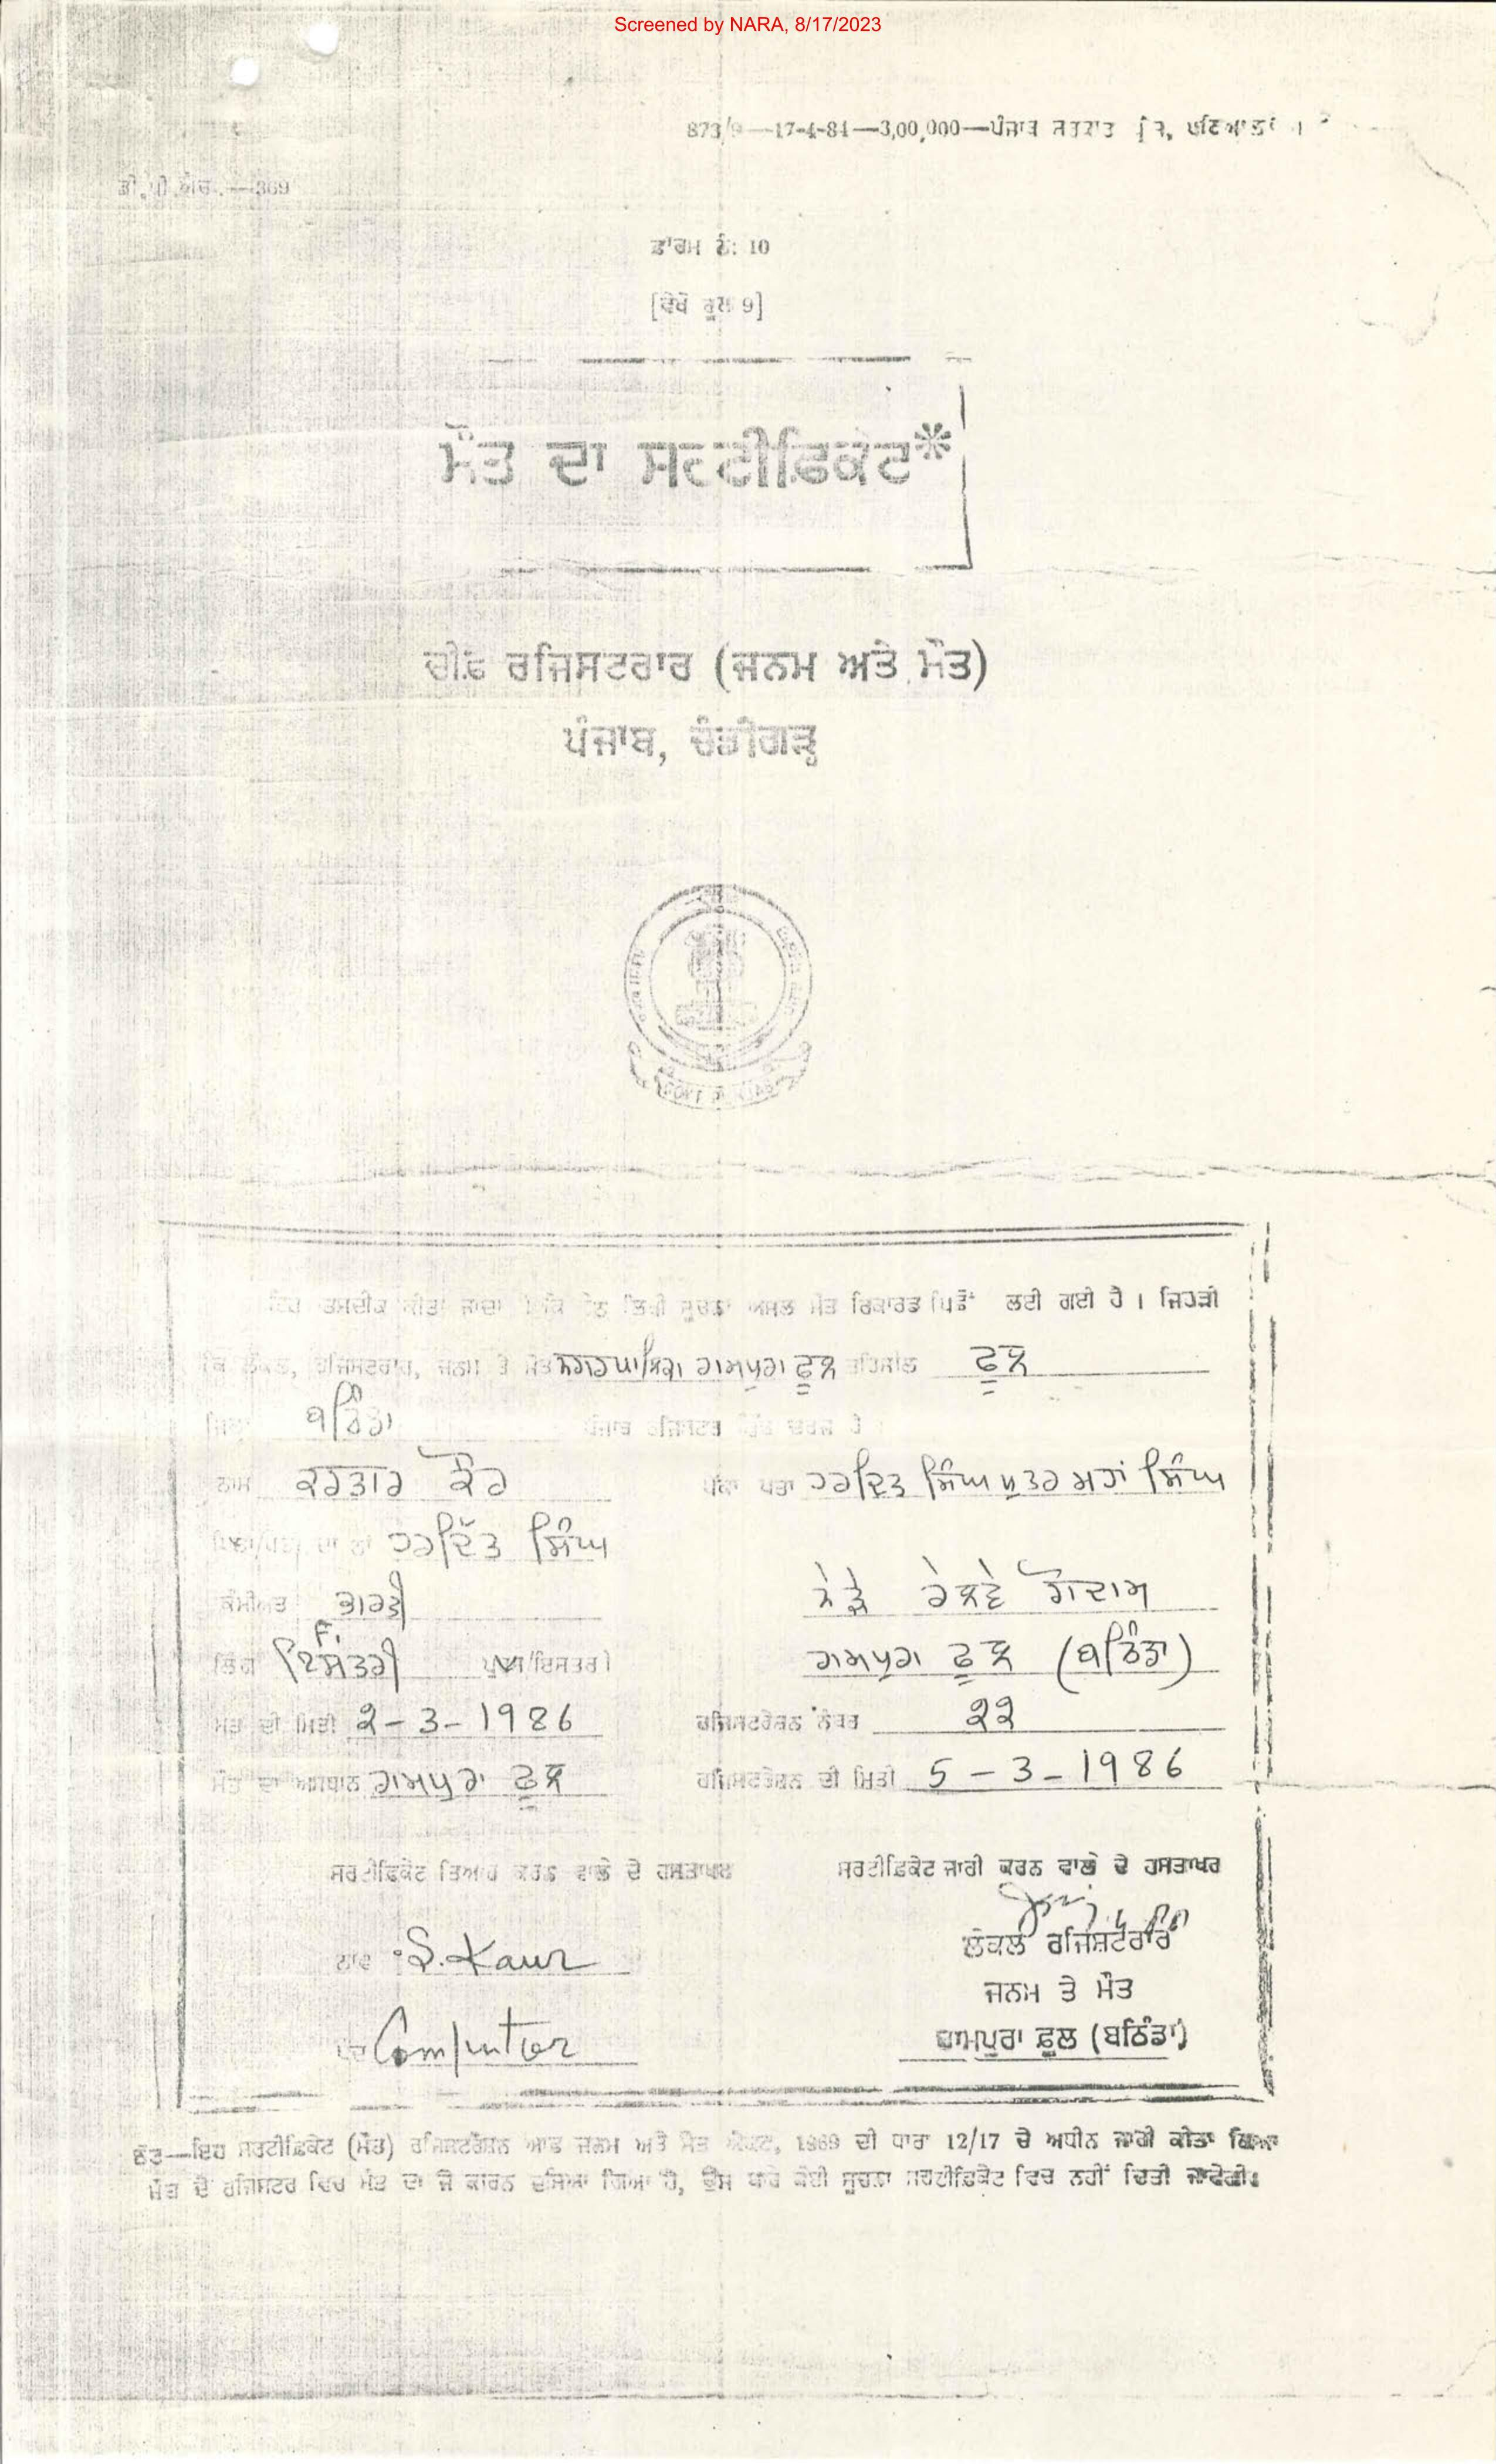 Screened by NARA, 8/17/2023
873/9—17-4-84—3,00,000—ਪੰਜਾਬ
—369
ਫਾਰਮ ਨੰ: 10
[ਵੇਖੋ ਰੂਲ 9]
ਮੌਤ ਦਾ ਸਰਟੀਫ਼ਿਕੇਟ*
ਚੀਫ਼ ਰਜਿਸਟਰਾਰ (ਜਨਮ ਅਤੇ ਮੌਤ)
ਪੰਜਾਬ, ਚੰਡੀਗੜ੍ਹ
ਇਹ ਤਸਦੀਕ ਕੀਤਾ ਜਾਂਦਾ ਹੈ ਕਿ ਹੇਠ ਲਿਖੀ ਸੂਚਨਾ ਅਸਲ ਮੌਤ ਰਿਕਾਰਡ ਵਿਚੋਂ ਲਈ ਗਈ ਹੈ । ਜਿਹੜੀ
ਕਿ ਲੋਕਲ, ਰਜਿਸਟਰਾਰ, ਜਨਮ ਤੇ ਮੌਤ ਨਗਰਪਾਲਿਕਾ ਰਾਮਪੁਰਾ ਫੂਲ ਤਹਿਸੀਲ ਫੂਲ
ਜਿਲਾ ਬਠਿੰਡਾ ਪੰਜਾਬ ਰਜਿਸਟਰ ਵਿੱਚ ਦਰਜ ਹੈ
ਨਾਮ ਕਰਤਾਰ ਕੌਰ ਪੱਕਾ ਪਤਾ ਹਰਦਿਤ ਸਿੰਘ ਪੁਤਰ ਮਹਾਂ ਸਿੰਘ
ਪਿਤਾ/ਪਤੀ ਦਾ ਨਾਂ ਹਰਦਿੱਤ ਸਿੰਘ
ਨੇੜੇ ਰੇਲਵੇ ਗੋਦਾਮ
ਕੌਮੀਅਤ ਭਾਰਤੀ
F.
ਲਿੰਗ ਇਸਤਰੀ ਪੁਰਸ਼/ਇਸਤਰੀ ਰਾਮਪੁਰਾ ਫੂਲ (ਬਠਿੰਡਾ)
ਮੌਤ ਦੀ ਮਿਤੀ 2-3-1986 ਰਜਿਸਟਰੇਸ਼ਨ ਨੰਬਰ 22
ਮੌਤ ਦਾ ਅਸਥਾਨ ਰਾਮਪੁਰਾ ਫੂਲ ਰਜਿਸਟਰੇਸ਼ਨ ਦੀ ਮਿਤੀ 5-3-1986
ਸਰਟੀਫ਼ਿਕੇਟ ਤਿਆਰ ਕਰਨ ਵਾਲੇ ਦੇ ਹਸਤਾਖਰ ਸਰਟੀਫ਼ਿਕੇਟ ਜਾਰੀ ਕਰਨ ਵਾਲੇ ਦੇ ਹਸਤਾਖਰ
ਨਾਂਵ S. Kaur ਲੋਕਲ ਰਜਿਸ਼ਟਰਾਰ
ਜਨਮ ਤੇ ਮੌਤ
Computer ਰਾਮਪੁਰਾ ਫੂਲ (ਬਠਿੰਡਾ)
ਨੋਟ—ਇਹ ਸਰਟੀਫ਼ਿਕੇਟ (ਮੌਤ) ਰਜਿਸਟਰੇਸ਼ਨ ਆਫ ਜਨਮ ਅਤੇ ਮੌਤ ਐਕਟ, 1969 ਦੀ ਧਾਰਾ 12/17 ਦੇ ਅਧੀਨ ਜਾਰੀ ਕੀਤਾ ਗਿਆ
ਮੌਤ ਦੇ ਰਜਿਸਟਰ ਵਿਚ ਮੌਤ ਦਾ ਜੋ ਕਾਰਨ ਦਸਿਆ ਗਿਆ ਹੈ, ਉਸ ਬਾਰੇ ਕੋਈ ਸੂਚਨਾ ਸਰਟੀਫ਼ਿਕੇਟ ਵਿਚ ਨਹੀਂ ਦਿਤੀ ਜਾਵੇਗੀ।